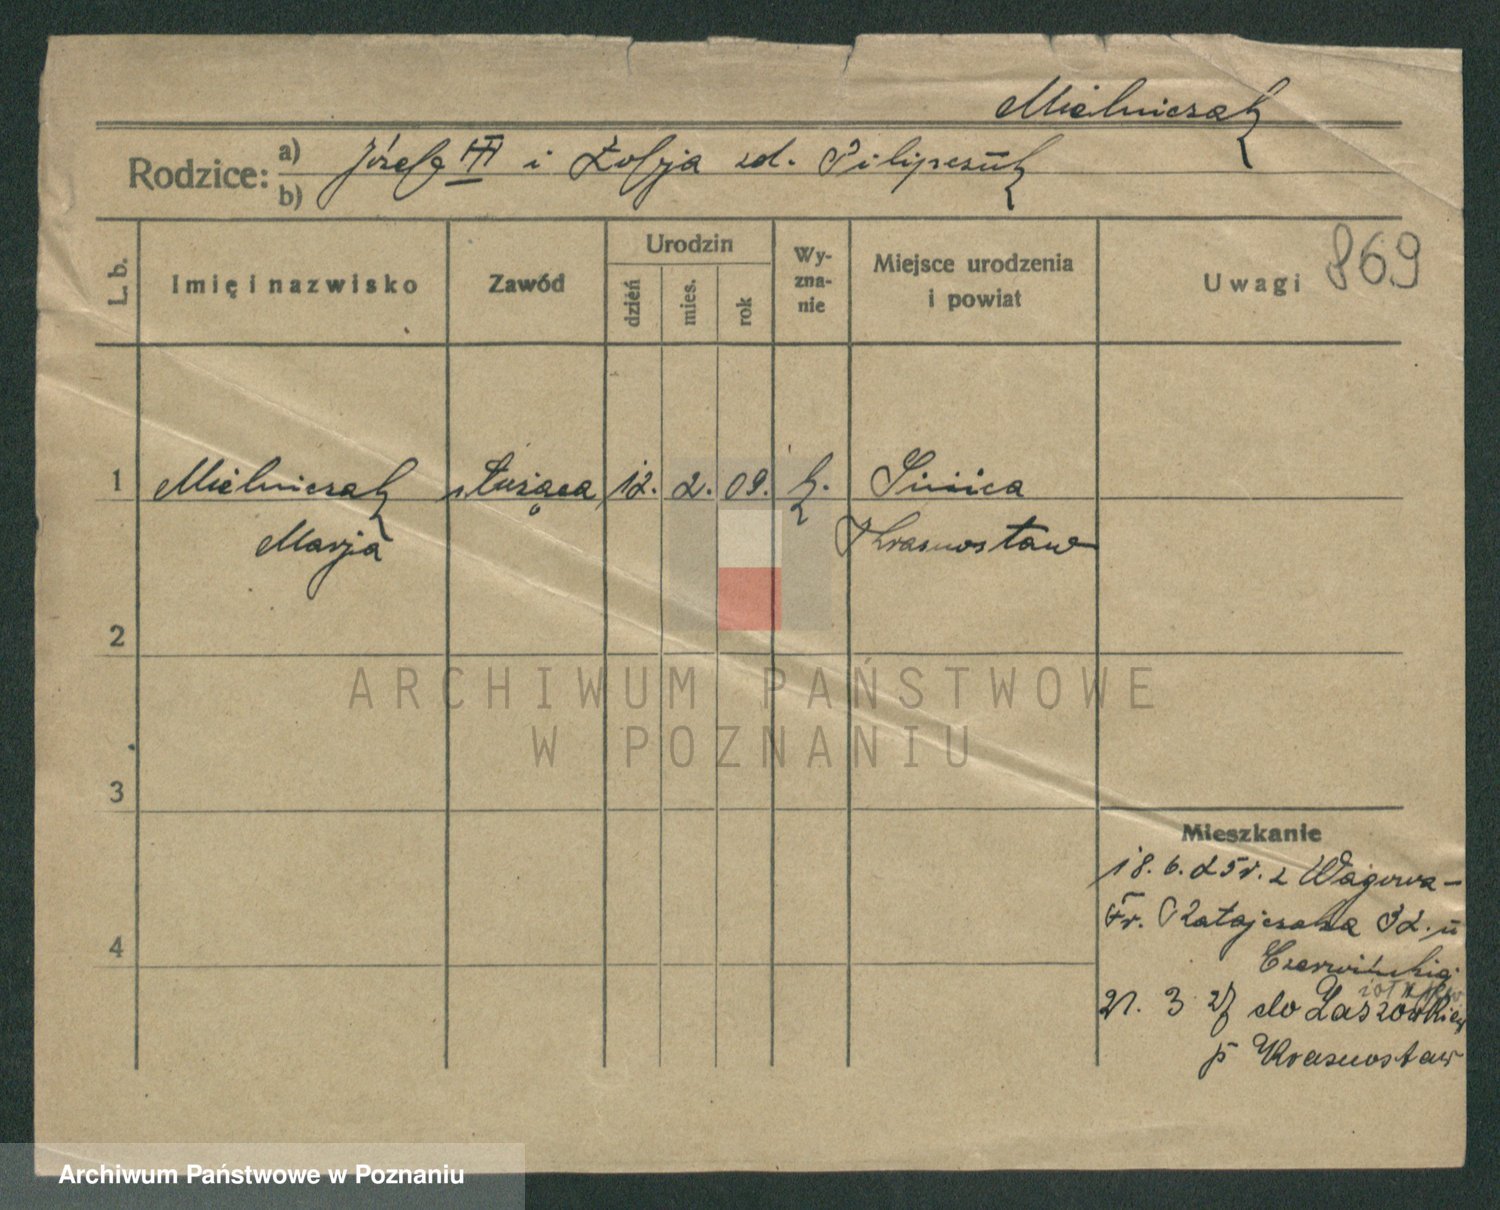 Mielniczak
Rodzice: a) Józef i Zofja zd. Filipczuk
b)
L. b.
Imię i nazwisko
Zawód
Urodzin
dzień
mies.
rok
Wy-
zna-
nie
Miejsce urodzenia
i powiat
Uwagi
869
1 Mielniczak służąca 12. 2. 09. k.
Marja Krasnostaw
2
ARCHIWUM PAŃSTWOWE
W POZNANIU
3
Mieszkanie
18. 6. 25 r. z Wągowa –
Fr. Ratajczaka 32. u
4
21. 3 27 do
p Krasnostaw
Archiwum Państwowe w Poznaniu